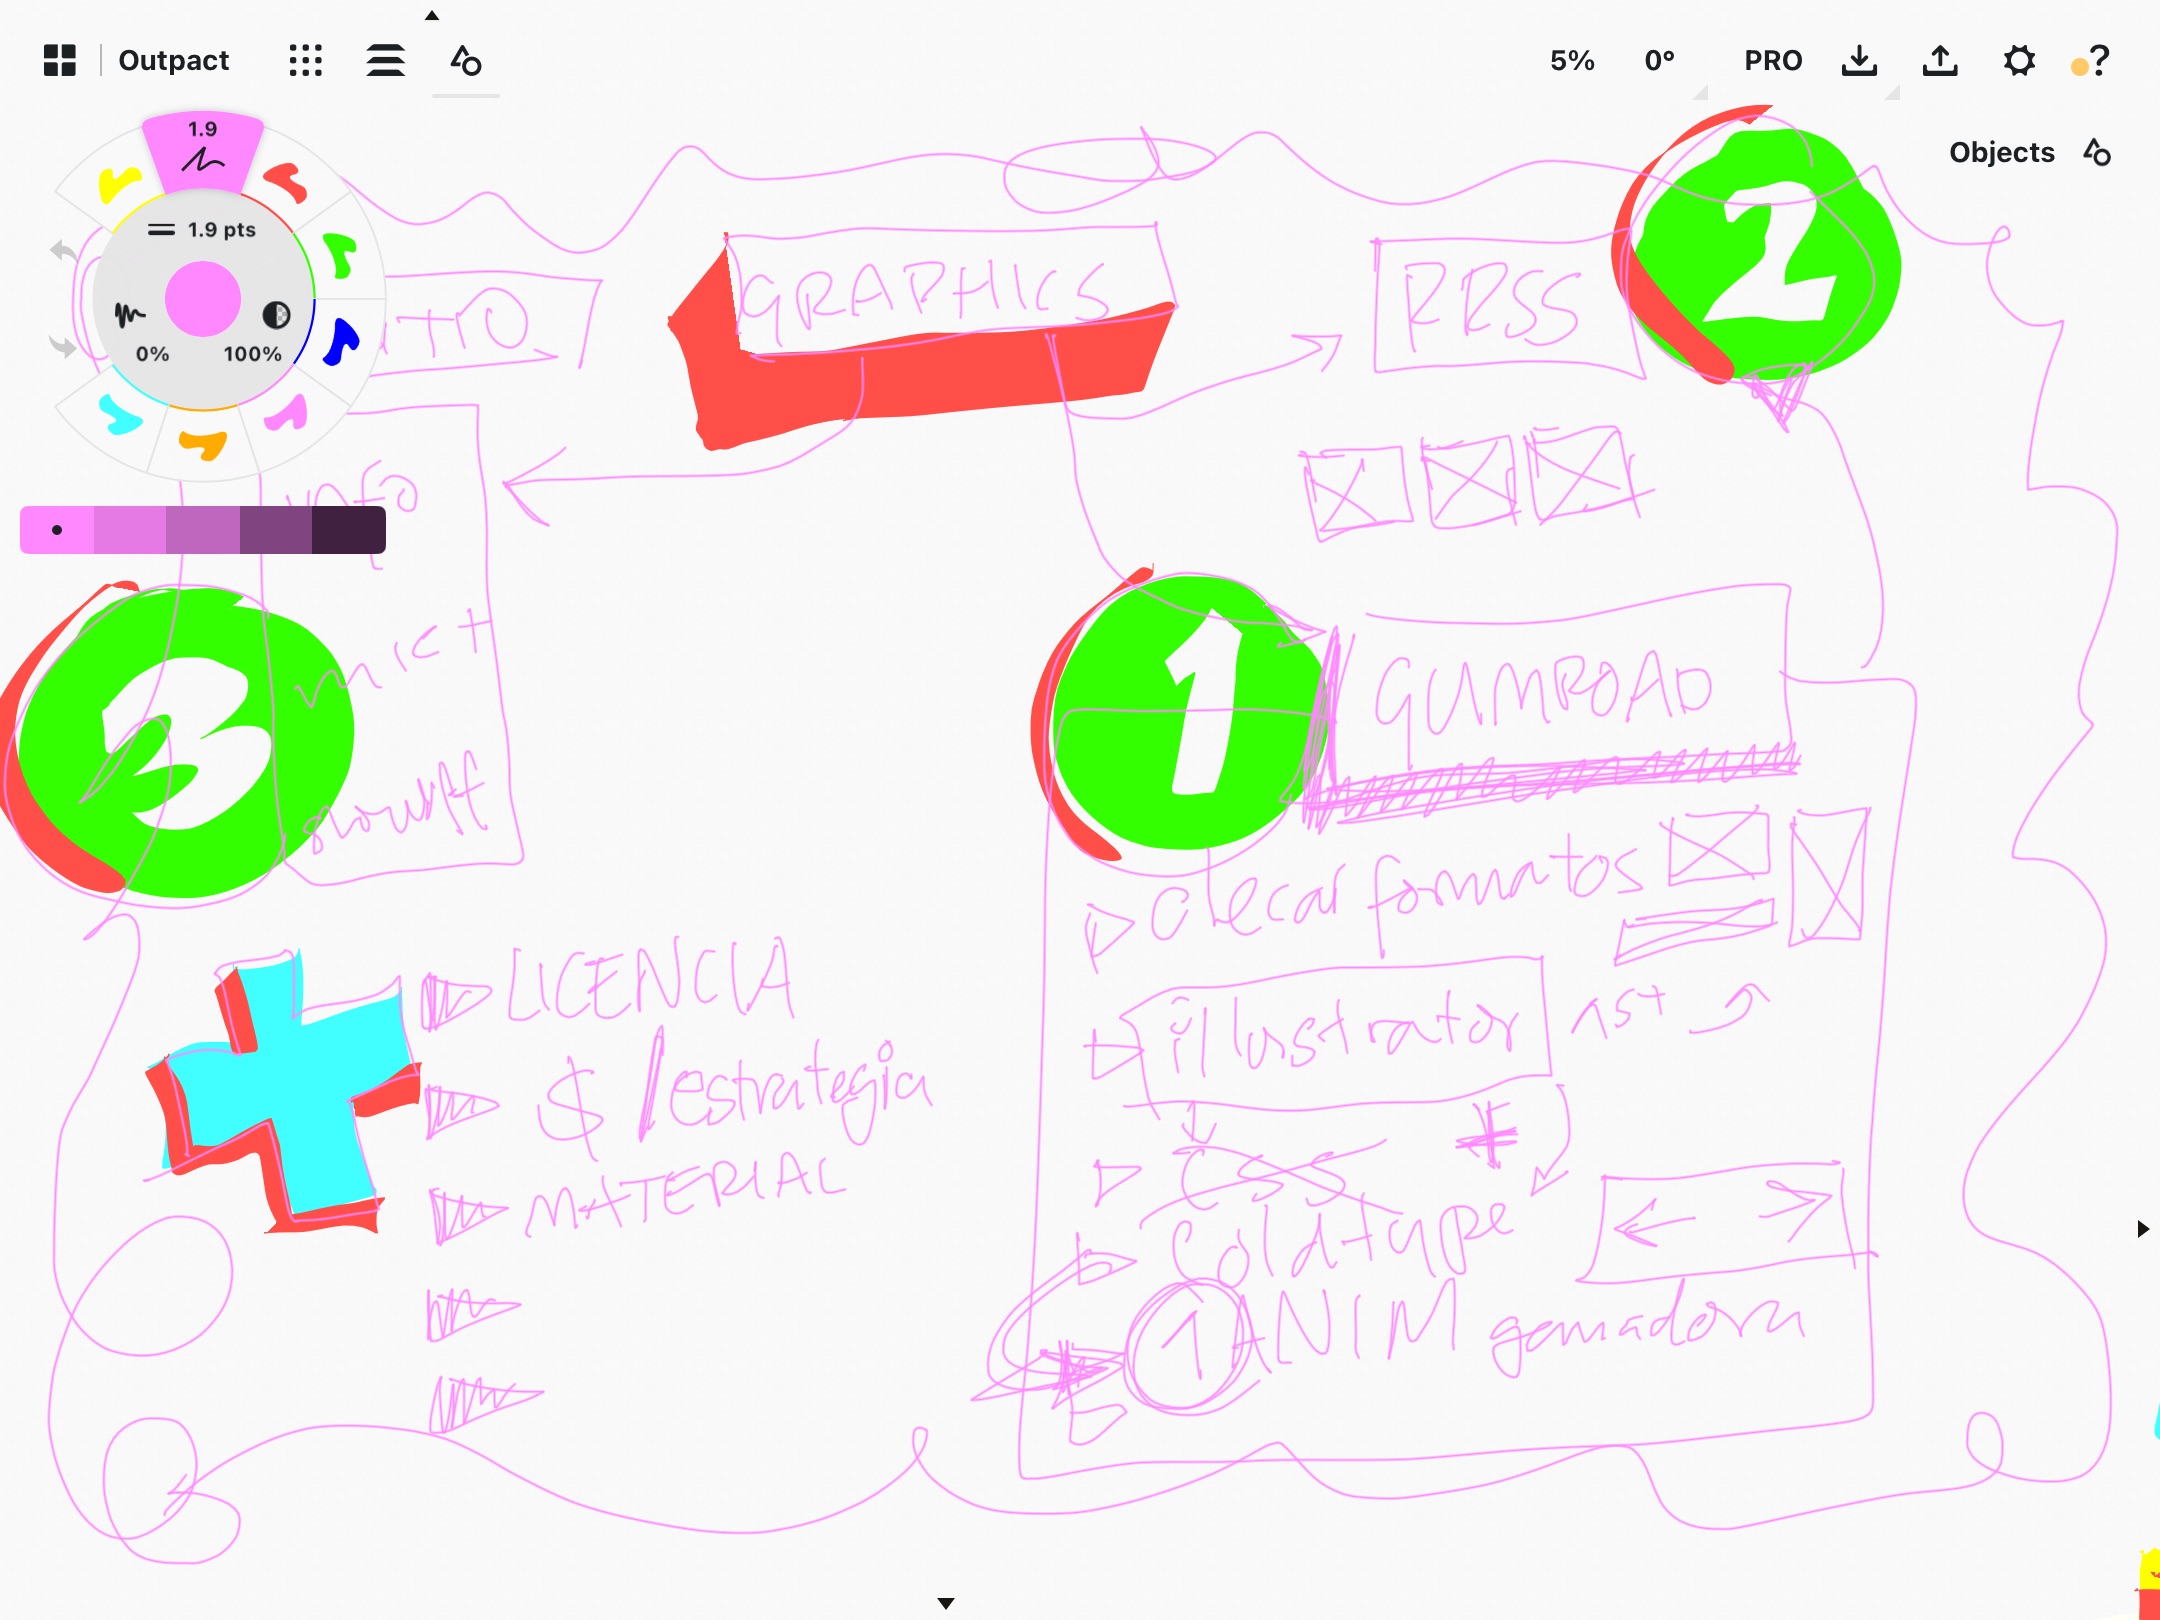 Outpact
5%
0°
PRO
?
Objects
1.9
1.9 pts
0%
100%
GRAPHICS
RRSS
2
info
3
growth
1
GUMROAD
checar formatos
illustrator 1st
CSS
Coldtype
1 ANIM ganadora
LICENCIA
$ / estrategia
MATERIAL